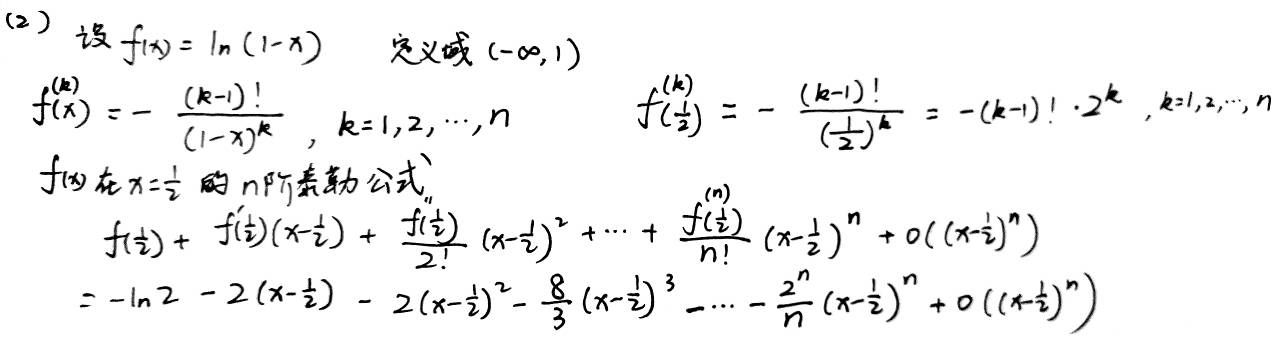 (2) 设 f(x) = ln(1-x) 定义域 (-∞,1)
f^{(k)}(x) = - \frac{(k-1)!}{(1-x)^k} , k=1,2,⋯,n f^{(k)}(\frac{1}{2}) = - \frac{(k-1)!}{(\frac{1}{2})^k} = -(k-1)!·2^k , k=1,2,⋯,n
f(x) 在 x=\frac{1}{2} 的 n阶泰勒公式
f(\frac{1}{2}) + f'(\frac{1}{2})(x-\frac{1}{2}) + \frac{f''(\frac{1}{2})}{2!}(x-\frac{1}{2})^2 + ⋯ + \frac{f^{(n)}(\frac{1}{2})}{n!}(x-\frac{1}{2})^n + o((x-\frac{1}{2})^n)
= -ln2 - 2(x-\frac{1}{2}) - 2(x-\frac{1}{2})^2 - \frac{8}{3}(x-\frac{1}{2})^3 - ⋯ - \frac{2^n}{n}(x-\frac{1}{2})^n + o((x-\frac{1}{2})^n)